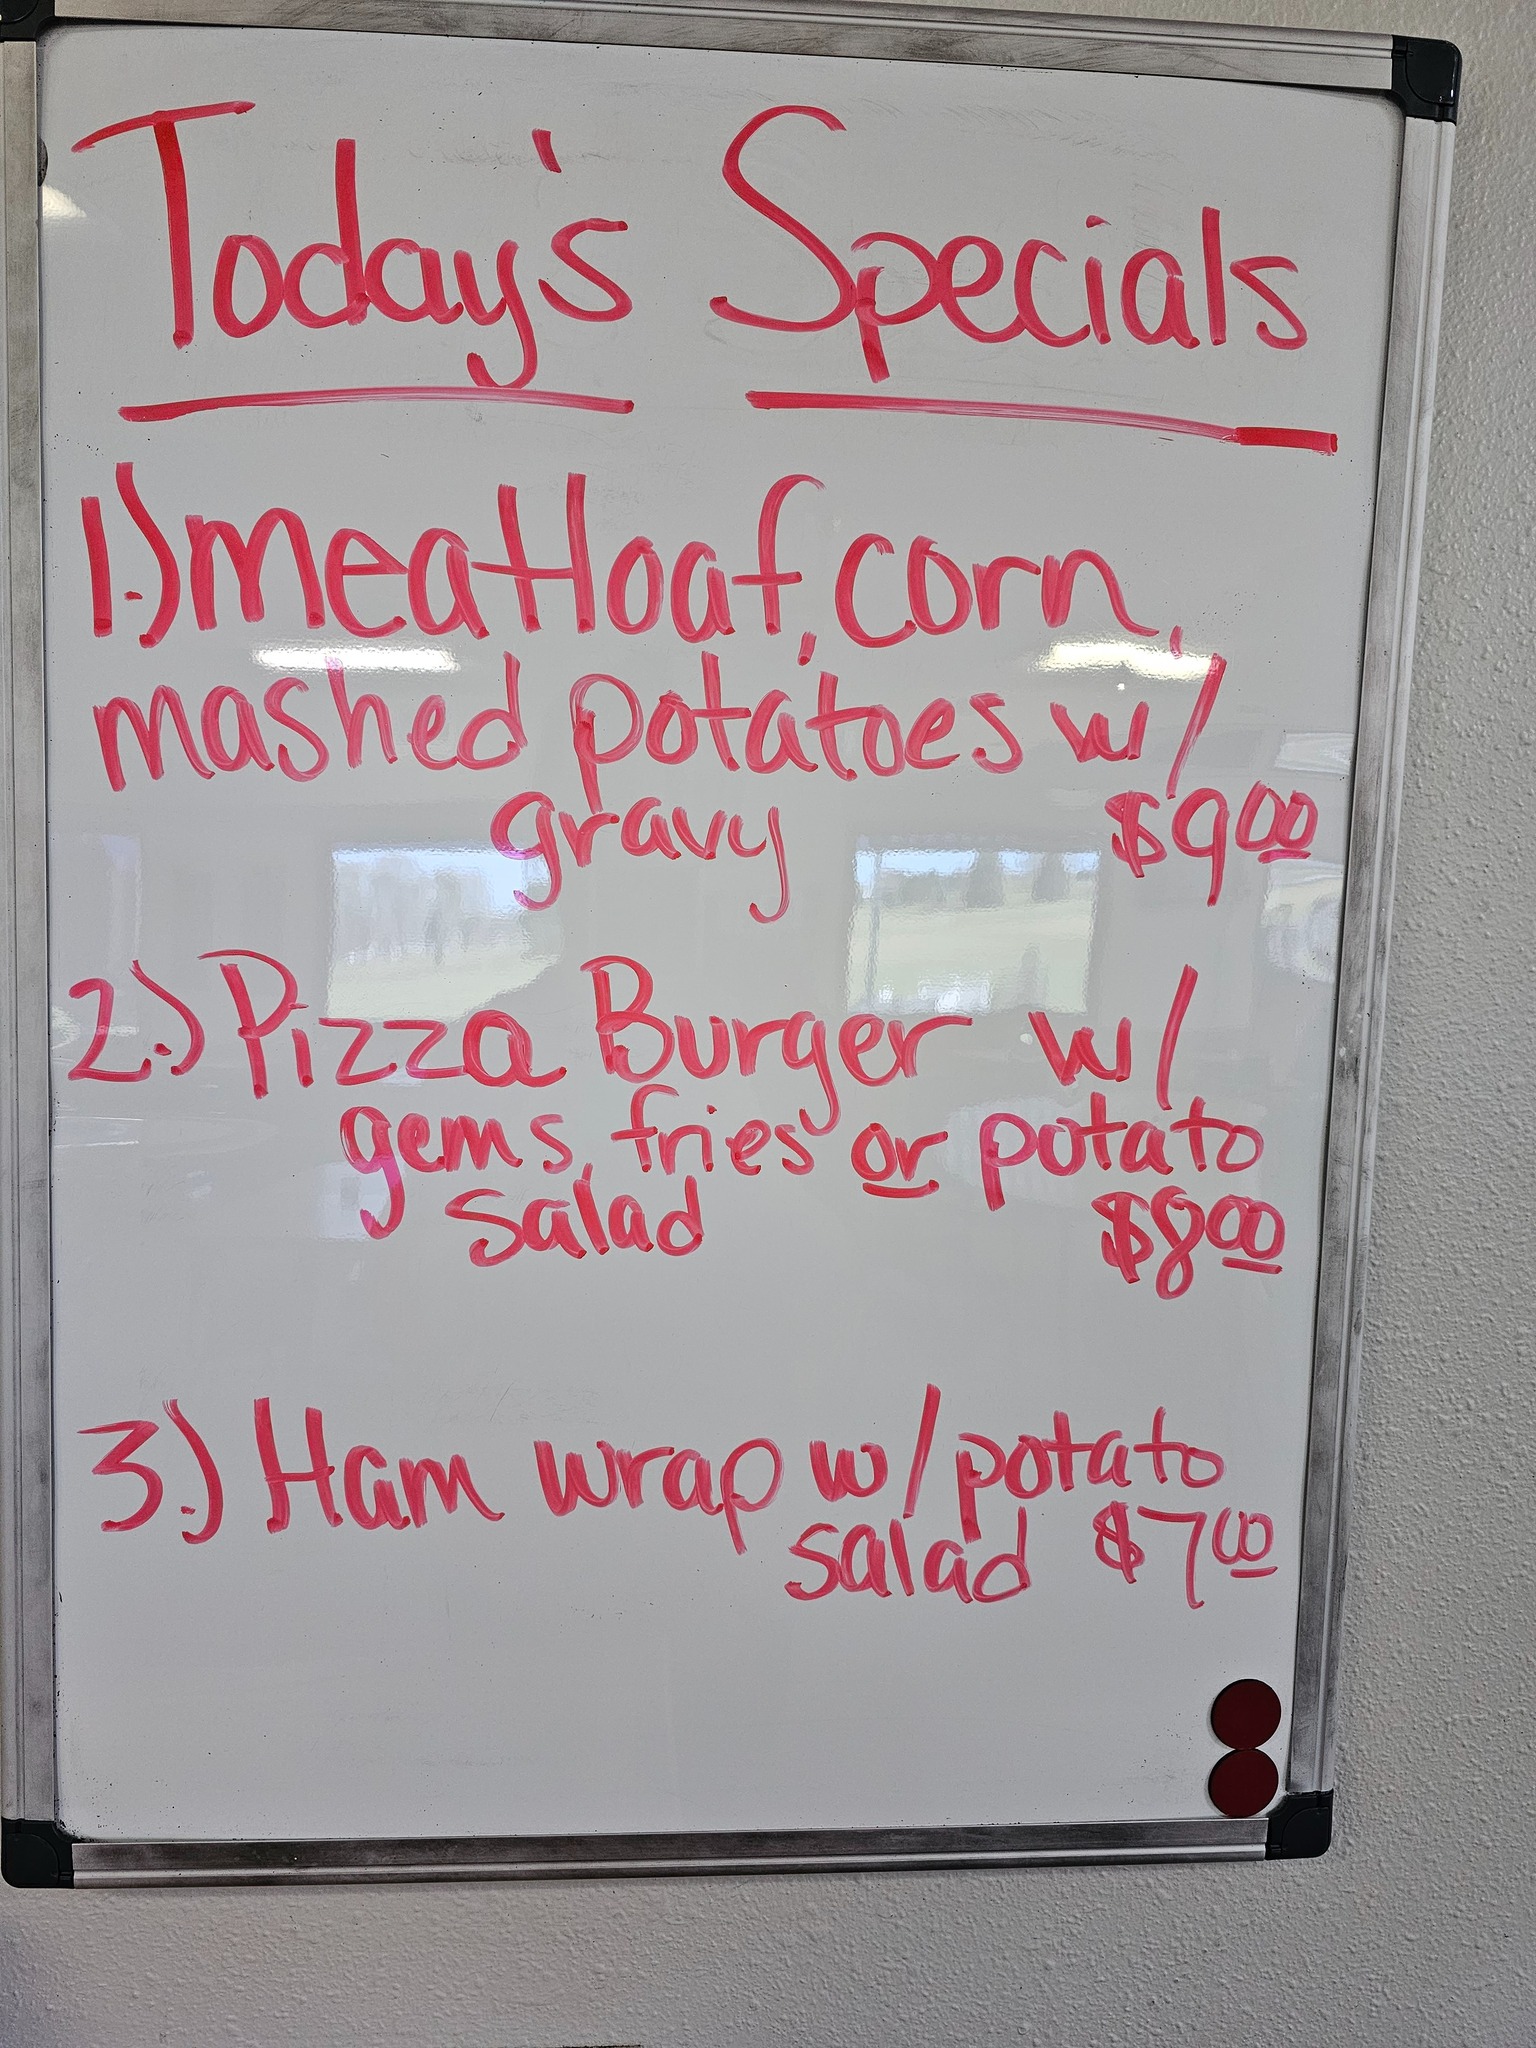 Today's Specials
1.) Meatloaf, corn,
mashed potatoes w/
gravy $9.00
2.) Pizza Burger w/
gems, fries or potato
salad $8.00
3.) Ham wrap w/ potato
salad $7.00